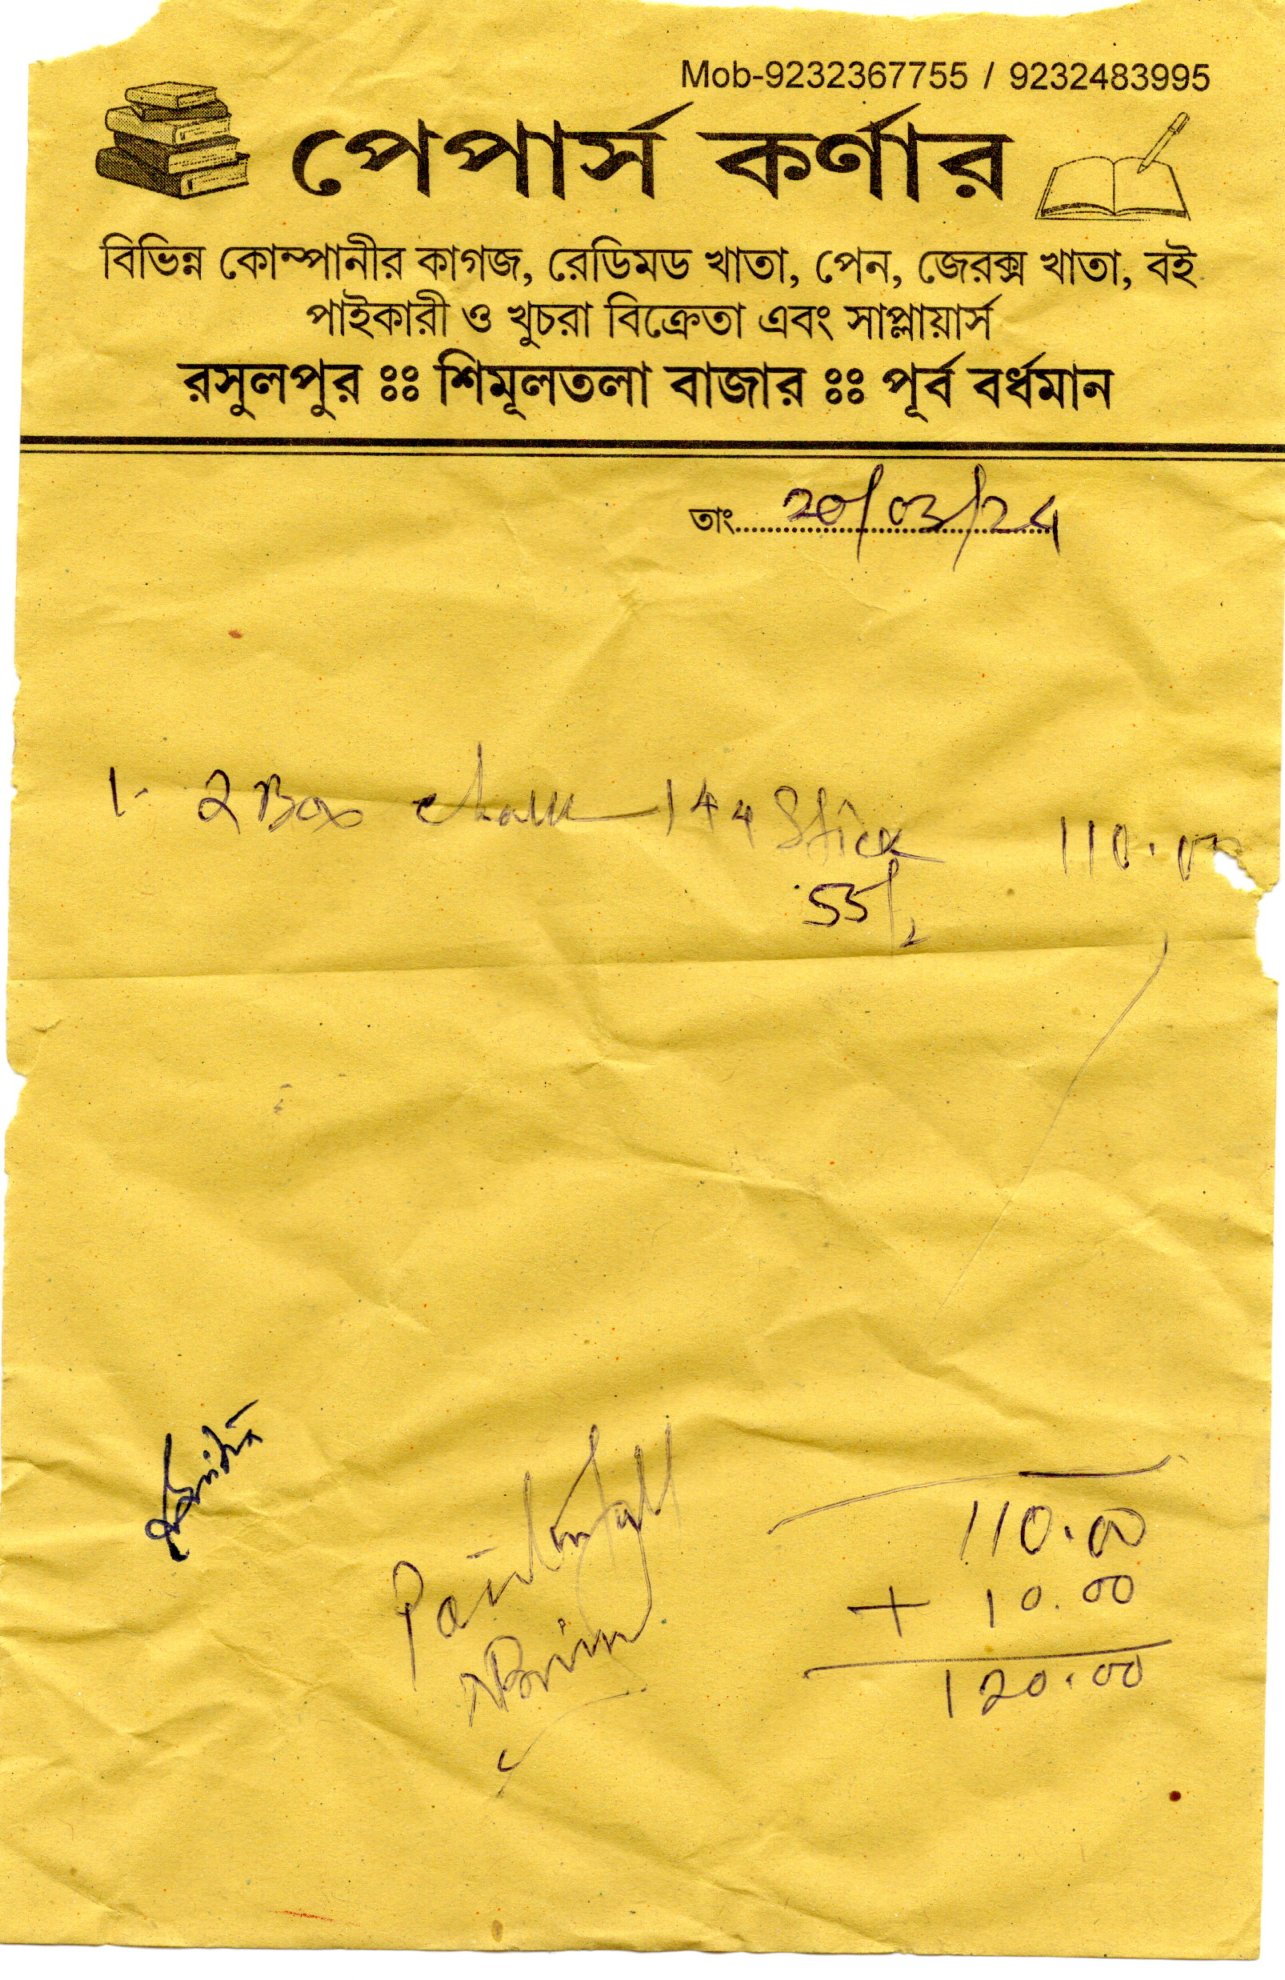 Mob-9232367755 / 9232483995
পেপার্স কর্ণার
বিভিন্ন কোম্পানীর কাগজ, রেডিমড খাতা, পেন, জেরক্স খাতা, বই
পাইকারী ও খুচরা বিক্রেতা এবং সাপ্লায়ার্স
রসুলপুর ঃঃ শিমূলতলা বাজার ঃঃ পূর্ব বর্ধমান
তাং 20/03/24
1- 2 Box chalk - 144 Stick 110.00
55/
110.00
+ 10.00
120.00
Paid